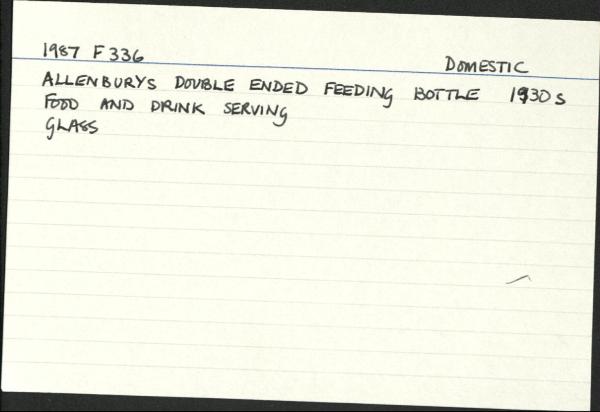 1987 F 336
DOMESTIC
ALLENBURYS DOUBLE ENDED FEEDING BOTTLE 1930s
FOOD AND DRINK SERVING
GLASS